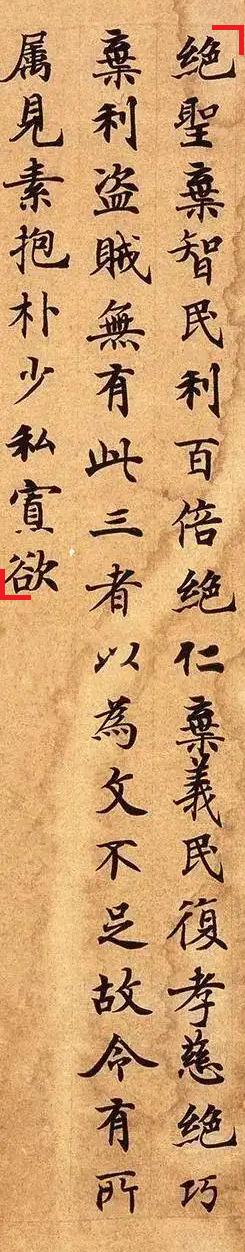 絕聖棄智民利百倍絕仁棄義民復孝慈絕巧
棄利盜賊無有此三者以為文不足故令有所
属見素抱朴少私寡欲